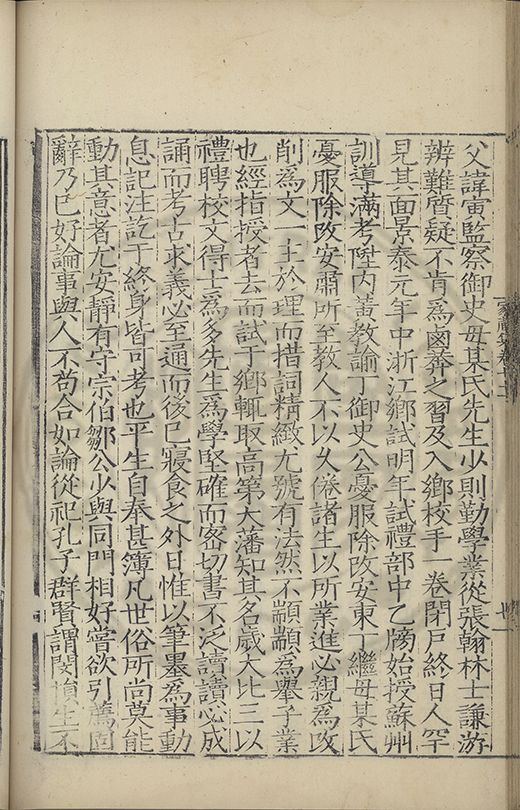 父諱寅監察御史母某氏先生少則勤學業從張翰林士謙游
辨難質疑不肯爲鹵莽之習及入鄉校手一卷閉戸終日人罕
見其面景泰元年中浙江鄉試明年試禮部中乙牓始授蘇州
訓導滿考陞內黃教諭丁御史公憂服除攺安東丁繼母某氏
憂服除攺安肅所至教人不以久倦諸生以所業進必親爲攺
削爲文一主於理而措詞精緻尤號有法然不顓顓爲舉子業
也經指授者去而試于鄉輒取高第大藩知其名歲大比三以
禮聘校文得士爲多先生爲學堅確而密切書不泛讀讀必成
誦而考古求義必至通而後已寢食之外日惟以筆墨爲事動
息記注訖于終身皆可考也平生自奉甚簿凡世俗所尚莫能
動其意者尤安靜有守宗伯鄒公少與同門相好嘗欲引薦固
辭乃已好論事與人不苟合如論從祀孔子群賢謂閔損生不